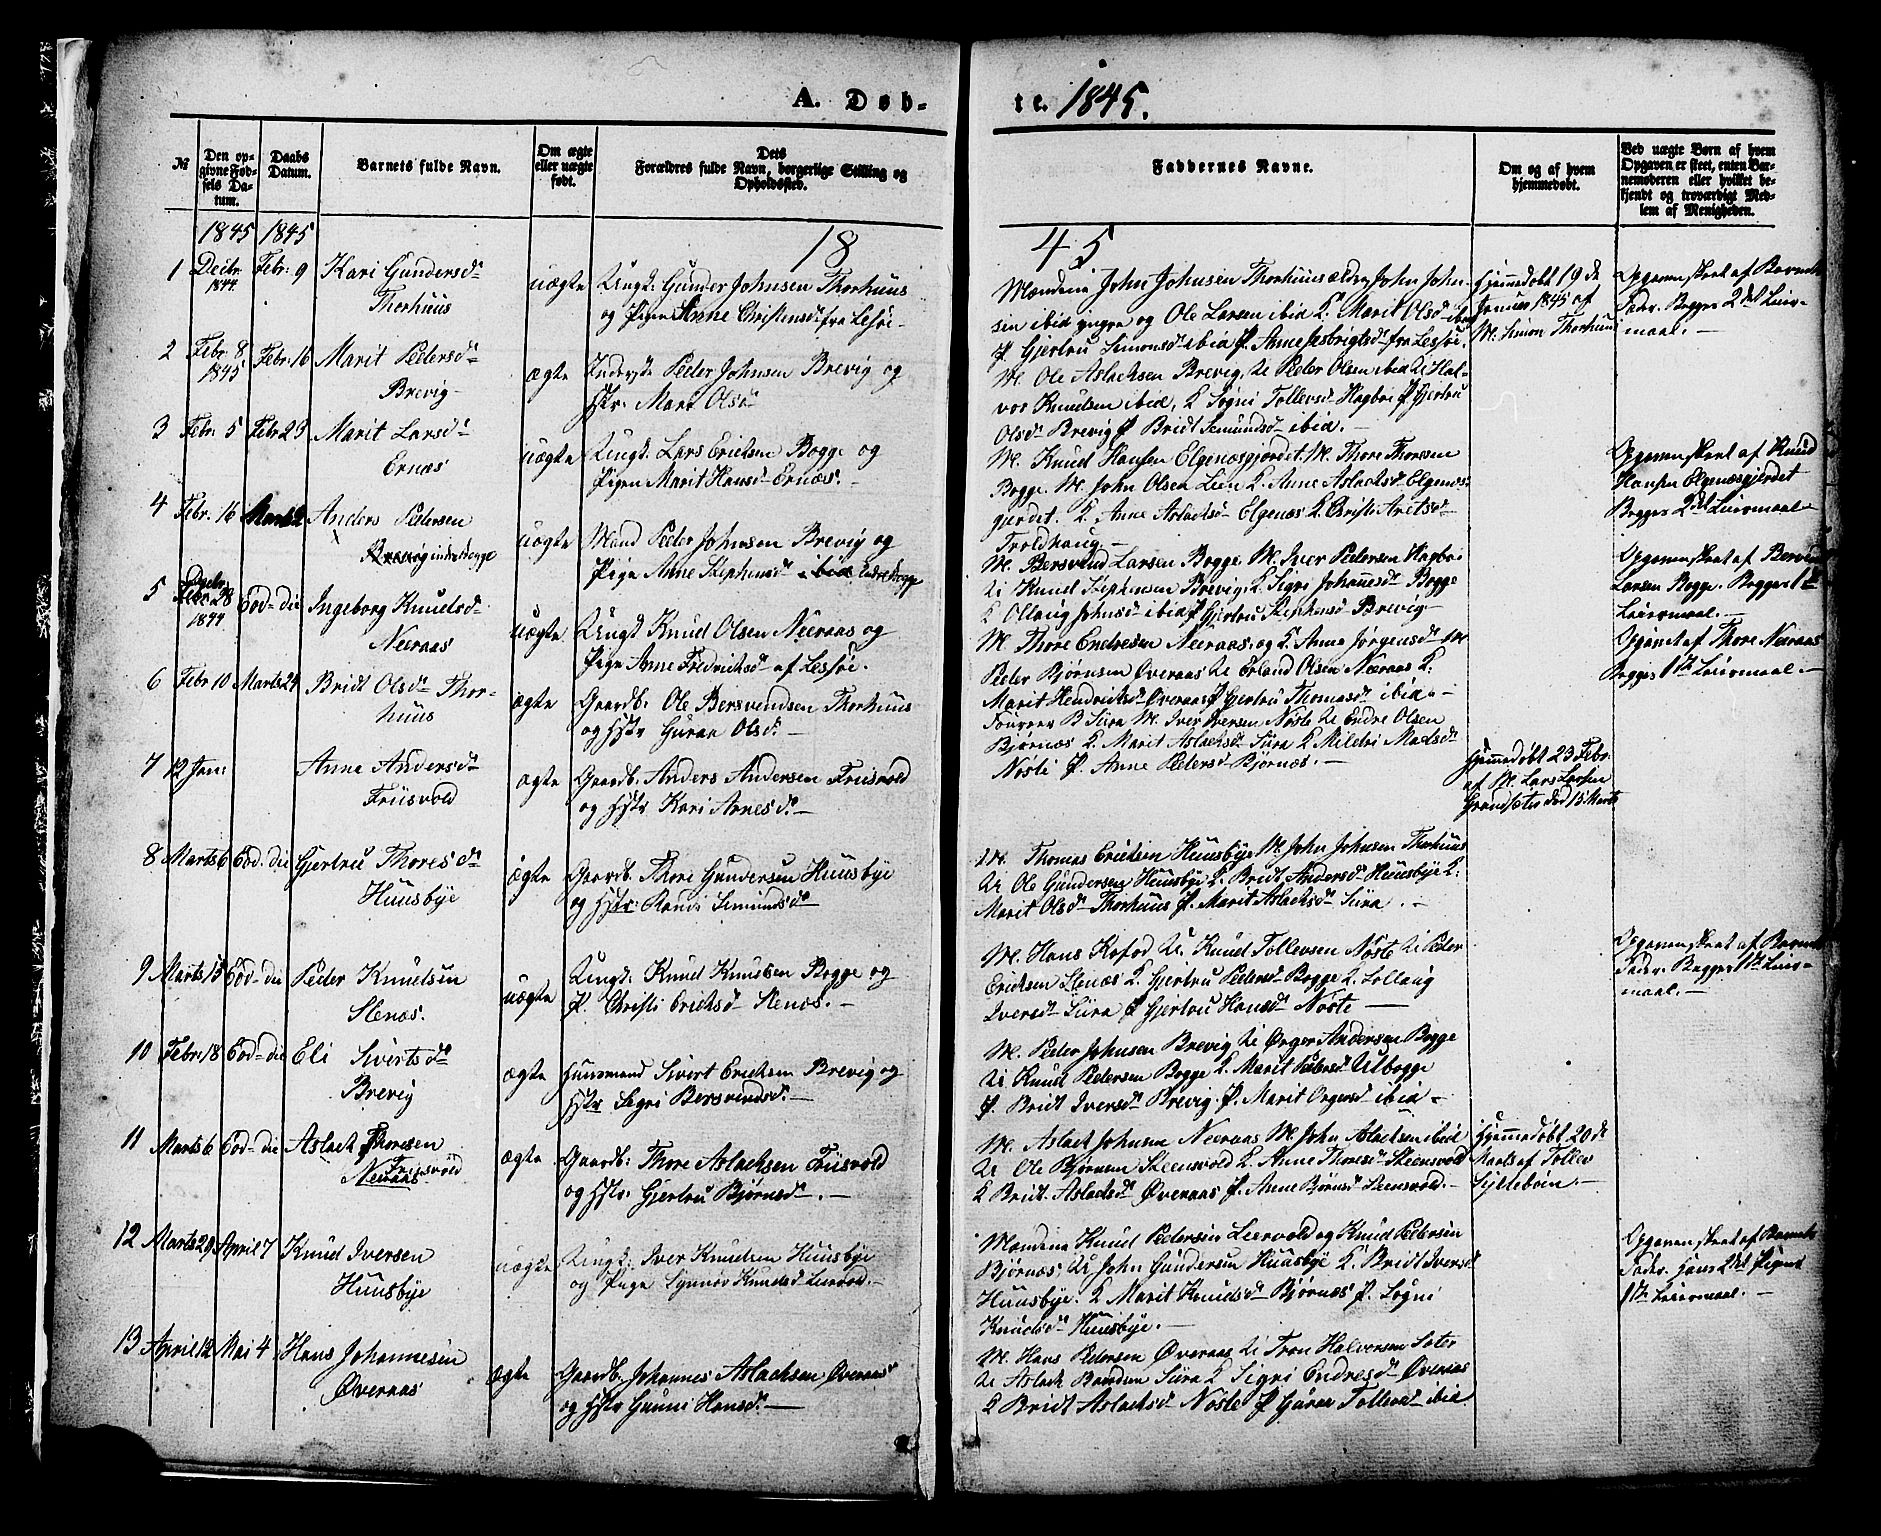 A. Døb-
te. 1845.
№
Den op-
givne Fød-
sels Da-
tum.
Daabs
Datum.
Barnets fulde Navn.
Om ægte
eller uægte
født.
Dets
Forældres fulde Navn, borgerlige Stilling og
Opholdssted.
Faddernes Navne.
Om og af hvem
hjemmedøbt.
Ved uægte Børn af hvem
Opgaven er skeet, enten Bar-
nemoderen eller hvilket be-
kjendt og troværdigt Med-
lem af Menigheden.
1845 1845
18
45
1 Decbr. 1844 Febr: 9 Kari Gundersdr
Thorhuus
uægte
Ungk: Gunder Johnsen Thorhuus
og Pigen Anne Christensdr fra Lesøe.
Mændene John Johnsen Thorhuus ældre, John John-
sen ibid yngre og Ole Larsen ibid K. Marit Olsdr ibid
P. Gjertru Simonsdr ibid P. Anne fra Lessøe.
Hjemmedøbt 19 de
Januar 1845 af
M. Simon Thorhuus
Opgaven skeet af Barnets
Fader. Begges 2det Leier-
maal.
2 Febr. 8 1845 Febr. 16 Marit Pedersdr
Brevig
ægte
Inderst Peder Johnsen Brevig og
Hstr: Mari Olsdr
M. Ole Aslachsen Brevig, U Peder Olsen ibid U Hal-
vor Knudsen ibid, K Sigri Tollevsdr Hagbøe P Gjertru
Olsdr Brevig P Bridt Semundsdr ibid.
3 Febr. 5 Febr 23 Marit Larsdr
Ernæs
uægte
Ungk: Lars Erichsen Bogge og
Pigen Marit Hansdr Ernæs.
M. Knud Hansen Elgenæsgjerdet. M. Thore Thoresen
Bogge. M. John Olsen Lien K. Anne Aslachsdr Elgenæs-
gjerdet. K. Anne Aslachsdr Elgenæs K. Christi Aritsdr
Troldhaug
Opgaven skeet af Knud
Hansen Elgenæsgjerdet
Begges 2det Leiermaal
4 Febr. 16 Marts 2 Anders Pedersen
Brevig indre Bogge
uægte
Mand Peder Johnsen Brevig og
Pige Anne Stephensdr ibid Indre Bogge
M. Bersvend Larsen Bogge M. Iver Pedersen Hagbøe
U Knud Stephensen Brevig, K. Sigri Johannesdr Bogge
K Ollaug Johnsdr ibid P Gjertru Stephensdr Brevig
Opgaven skeet af Bersvend
Larsen Bogge. Begges 1te
Leiermaal.
5 Decbr 28 1844 Eod-die Ingeborg Knudsdr
Neeraas
uægte
Ungk Knud Olsen Neeraas og
Pigen Anne Fredrichsdr af Lessøe.
M. Thore Endresen Neeraas, og K. Anne Jørgensdr M
Peder Bjørnsen Øveraas U Erland Olsen Neeraas K.
Marit Hendrichsdr Øveraas P Gjertru Thomasdr ibid.
Opgave af Thore Neeraas
Begges 1te Leiermaal.
6 Febr 10 Marts 24 Bridt Olsdr Thor-
huus
ægte
Gaardb: Ole Bersvendsen Thorhuus
og Hstr Guraa Olsdr.
B Siira M. Iver Iversen Nøste U Endre Olsen
Bjørnæs K. Marit Aslachsdr Siira K Mildri Madsdr
Nøste P. Anne Pedersdr Bjørnæs.
7 12 Jan: Anne Andersdr
Friisvold
ægte
Gaardb: Anders Andersen Friisvold
og Hstr Kari Arnesdr.
Hjemmedøbt 23 Febr.
af M. Lars Larsen
Grandsæter død 15 Marts
8 Marts 6 Eod. die Gjertru Thoresdr
Huusbye
ægte
Gaardb. Thore Gundersen Huusbye
og Hstr: Randi Simundsdr
M. Thomas Erichsen Huusbye M. John Johnsen Thorhuus
U Ole Gundersen Huusbye K. Bridt Andersdr Huusbye K.
Marit Olsdr Thorhuus P. Marit Aslachsdr Siira.
9 Marts 13 Eod-die Peder Knudsen
Stenæs.
uægte
Ungk: Knud Knudsen Bogge og
P. Christi Erichsdr Stenæs.
M. Hans Kofod U. Knud Tollevsen Nøste U Peder
Erichsen Stenæs K. Gjertru Pedersdr Bogge K. Sollaug
Iversdr Siira P Gjertru Hansdr Nøste
Opgaven skeet af Barnets
Fader. Begges 1te Leier-
maal.
10 Febr 18 Eod-die Eli Sivertsdr
Brevig
ægte
Huusmand Sivert Erichsen Brevig og
Hstr Sigri Bersvendsdr.
M. Peder Johnsen Brevig U Ørger Andersen Bogge
U Knud Pedersen Bogge K Marit Pedersdr Utbogge
P. Bridt Iversdr Brevig P. Marit Orgersdr ibid.
11 Marts 6 Eod-die Aslach Thoresen
Neeraas Friisvold
ægte
Gaardb: Thore Aslachsen Friisvold
og Hstr: Gjertru Bjørnsdr.
M. Aslach Johnsen Neeraas M. John Aslachsen ibid
U Ole Bjørnsen Steensvold K. Anne Thoresdr Steensvold
K Bridt Aslachsdr Øveraas P. Anne Bjørnsdr Steensvold.
Hjemmedøbt 20 de
Marts af Tollev
Syltebøen.
12 Marts 29 April 7 Knud Iversen
Huusbye
uægte
Ungk: Iver Knudsen Huusbye
og Pige Synnøv Knudsdr Leervold.
Mændene Knud Pedersen Leervold og Knud Pedersen
Bjørnæs, U John Gundersen Huusbye K. Bridt Iversdr
Huusbye. K Marit Knudsdr Bjørnæs P. Sogni
Knudsdr Huusbye.
Opgaven skeet af Barnets
Fader. Hans 2det Pigens
1te Leiermaal.
13 April 12 Mai 4 Hans Johannesen
Øveraas
ægte
Gaardb. Johannes Aslachsen Øveraas
og Hstr Gunni Hansdr.
M. Hans Pedersen Øveraas U Tron Halvorsen Sæter
U Aslach Siira K Sigri Endresdr Øveraas
K Bridt Aslachsdr Nøste P Guraa Tollevsdr ibid